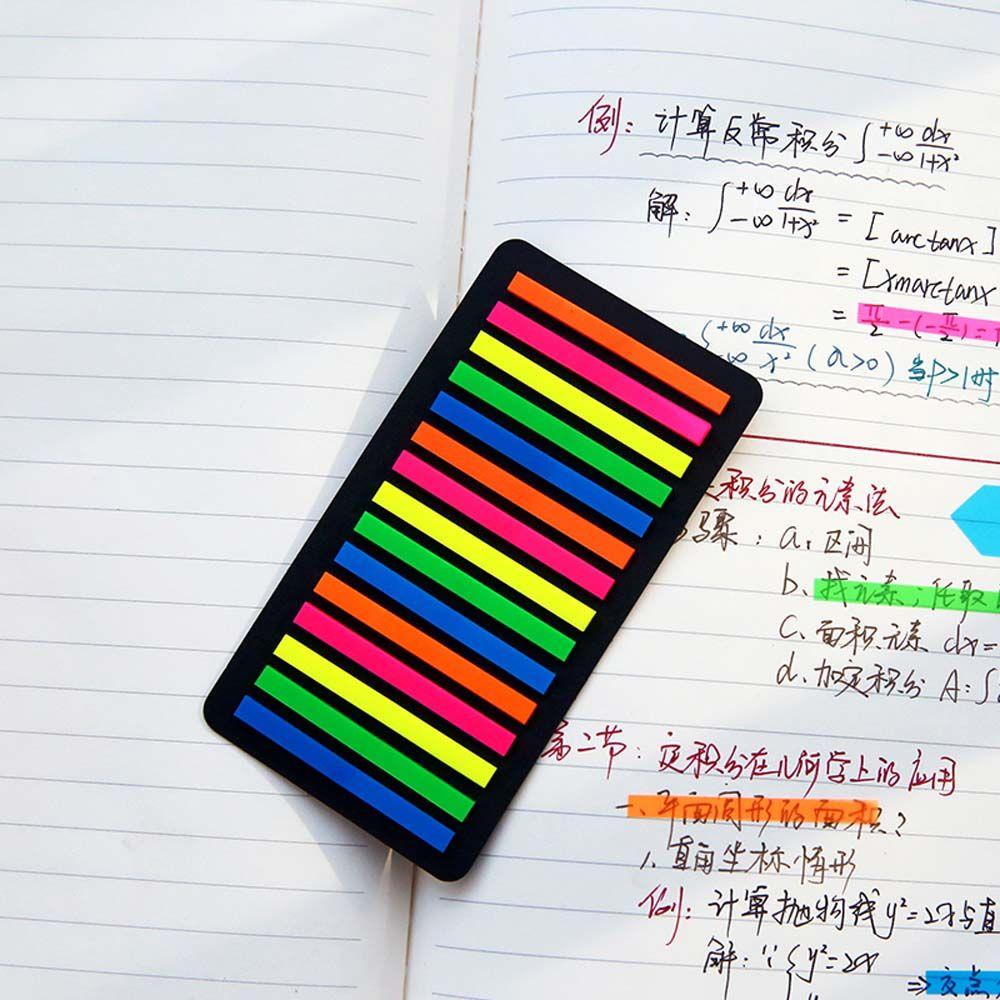 例: 计算反常积分 ∫+∞ -∞ dx/1+x²
解: ∫+∞ -∞ dx/1+x² = [arctanx]
= [xmarctanx
= π/2 - (-π/2) =
∫+∞ dx/x² (a>0) 当P>1时
积分的元素法
骤: a. 区间
b. 找元素; 任取
c. 面积元素 dx=
d. 加定积分 A: ∫
第二节: 定积分在几何学上的应用
一、平面图形的面积?
1. 直角坐标情形
例: 计算抛物线y²=2x与直
解: ∵ { y²=2x
⇒ 交点